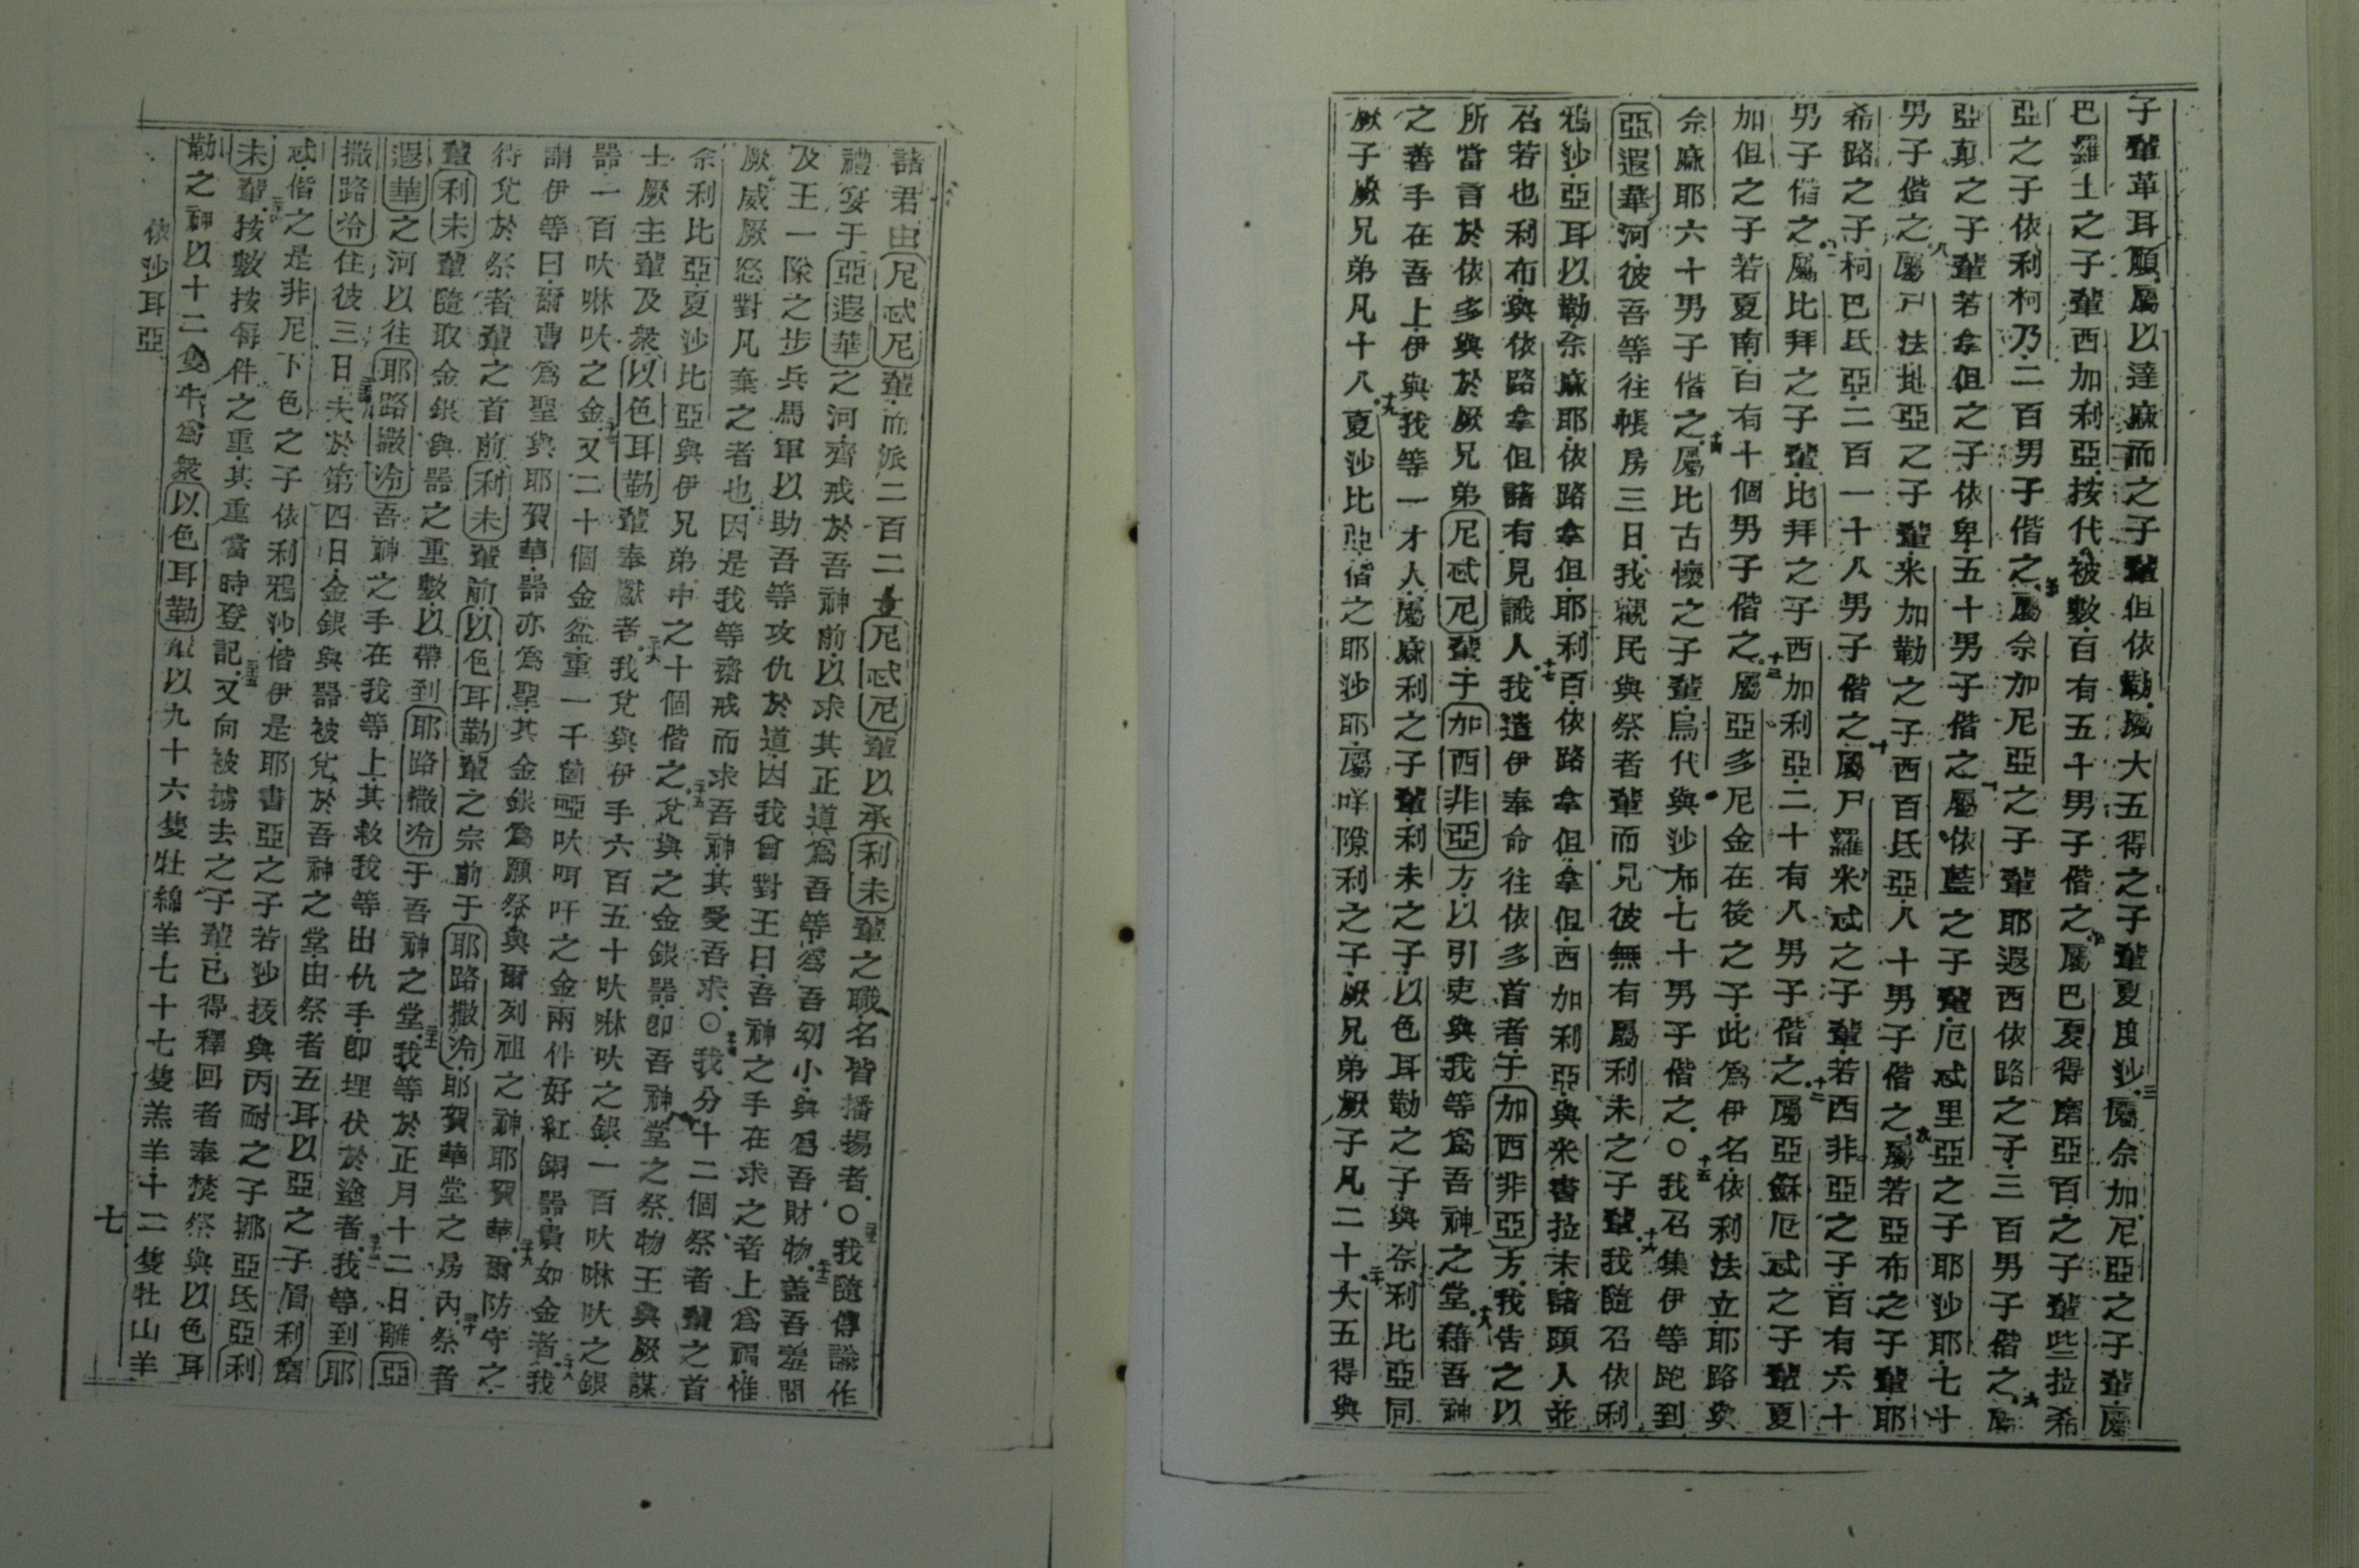 子輩革耳順屬以達麻而之子輩但依勒屬大五得之子輩夏度沙三屬佘加尼亞之子輩屬
巴羅士之子輩西加利亞按代被數百有五十男子偕之四屬巴夏得磨亞百之子輩些拉希
亞之子依利柯乃二百男子偕之五屬佘加尼亞之子輩耶遐西依路之子三百男子偕之六屬
亞頁之子輩若拿但之子依卑五十男子偕之七屬依藍之子輩厄忒里亞之子耶沙耶七十
男子偕之八屬尸法地亞之子輩米加勒之子西百氐亞八十男子偕之九屬若亞布之子輩耶
希路之子柯巴氐亞二百一十八男子偕之十屬尸羅米忒之子輩若西非亞之子百有六十
男子偕之屬比拜之子輩比拜之子西加利亞二十有八男子偕之十二屬亞蘇厄忒之子輩夏
加但之子若夏南百有十個男子偕之十三屬亞多尼金在後之子此爲伊名依利法立耶路與
佘麻耶六十男子偕之十四屬比古懷之子輩烏代與沙布七十男子偕之〇十五我召集伊等跑到
亞遐華河彼吾等往帳房三日我觀民與祭者輩而見彼無有屬利未之子輩十六我隨召依利
鴉沙亞耳以勒佘麻耶依路拿但耶利百依路拿但拿但西加利亞與米書拉末諸頭人並
召若也利布與依路拿但諸有見識人十七我遣伊奉命往依多首者于加西非亞方我告之以
所當言於依多與於厥兄弟尼忒尼輩于加西非亞方以引吏與我等爲吾神之堂十八藉吾神
之善手在吾上伊與我等一才人屬麻利之子輩利未之子以色耳勒之子與佘利比亞同
厥子厥兄弟凡十八十九夏沙比亞偕之耶沙耶屬咩隙利之子厥兄弟厥子凡二十二十大五得與
諸君由尼忒尼輩而派二百二十尼忒尼輩以承利未輩之職名皆播揚者〇我隨傳諭作
禮宴于亞遐華之河齊戒於吾神前以求其正道爲吾等爲吾幼小與爲吾財物二十二蓋吾羞問
及王一隊之步兵馬軍以助吾等攻仇於道因我曾對王曰吾神之手在求之者上爲福惟
厥威厥怒對凡棄之者也因是我等齋戒而求吾神其受吾求〇二十四我分十二個祭者輩之首
佘利比亞夏沙比亞與伊兄弟中之十個偕之二十五兌與之金銀器卽吾神堂之祭物王與厥謀
士厥主輩及衆以色耳勒輩奉獻者二十六我兌與伊手六百五十吠啉吠之銀一百吠啉吠之銀
器一百吠啉吠之金二十七又二十個金盆重一千箇啞吠咡吀之金兩件好紅銅器貴如金者二十八我
謂伊等曰爾曹爲聖與耶賀華器亦爲聖其金銀爲願祭與爾列祖之神耶賀華二十九爾防守之
待兌於祭者輩之首前利未輩前以色耳勒輩之宗前于耶路撒冷耶賀華堂之房內三十祭者
輩利未輩隨取金銀與器之重數以帶到耶路撒冷于吾神之堂三十一我等於正月十二日離亞
遐華之河以往耶路撒冷吾神之手在我等上其救我等出仇手卽埋伏於塗者三十二我等到耶
撒路冷住彼三日三十三夫於第四日金銀與器被兌於吾神之堂由祭者五耳以亞之子眉利磨
忒偕之是非尼下色之子依利鴉沙偕伊是耶書亞之子若沙拔與丙耐之子挪亞氐亞利
未輩三十四按數按每件之重其重當時登記三十五又向被擄去之子輩已得釋回者奉焚祭與以色耳
勒之神以十二隻牛爲衆以色耳勒輩以九十六隻牡綿羊七十七隻羔羊十二隻牡山羊
依沙耳亞
七